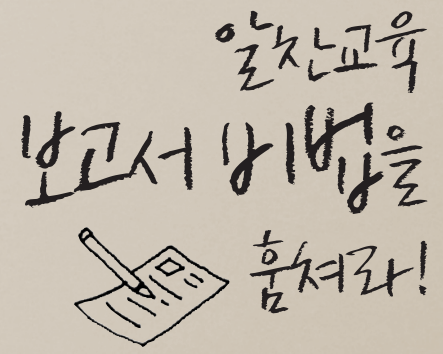 알찬교육
보고서 비법을
훔쳐라!